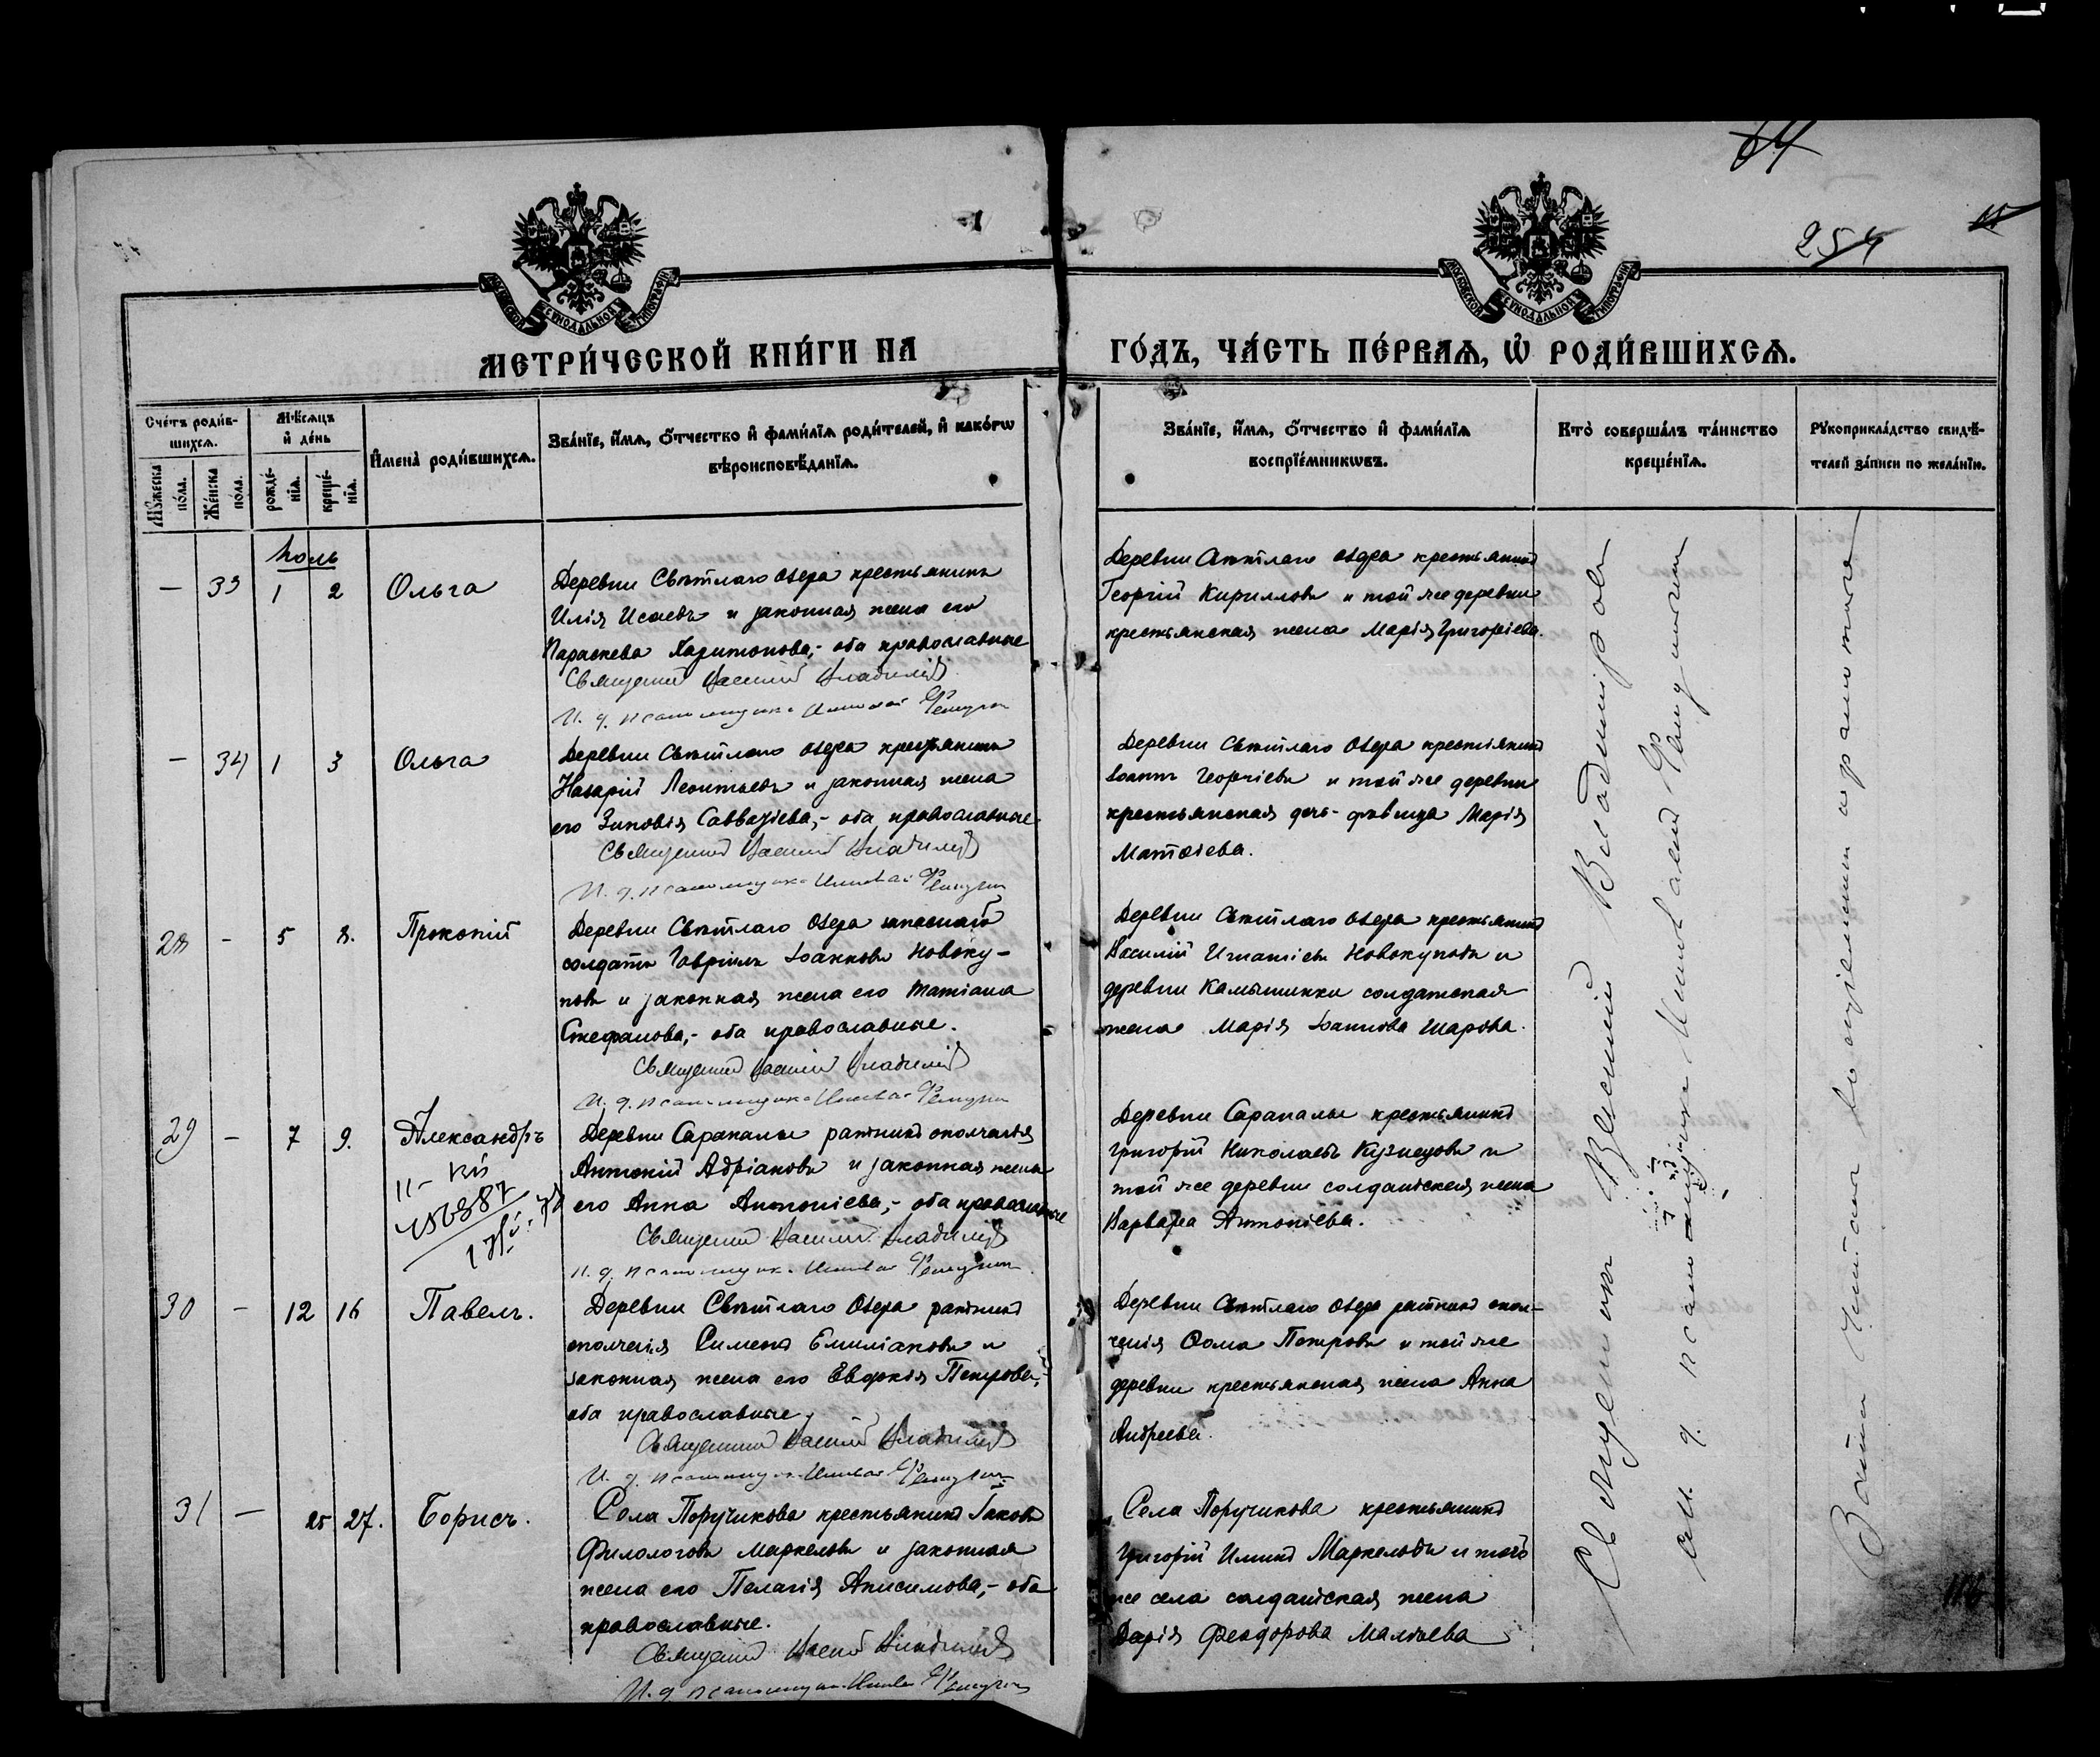 64
254
МОСКОВСКОЙ СѴНОДАЛЬНОЙ ТИПОГРАФІИ
МОСКОВСКОЙ СѴНОДАЛЬНОЙ ТИПОГРАФІИ
МЕТРИ́ЧЕСКОЙ КНИ́ГИ НА
ГО́ДЪ, ЧА́СТЬ ПЕ́РВАѦ, Ѡ҆ РОДИ́ВШИХСѦ.
Сче́тъ роди́в-
шихсѧ.
Мꙋжеска по́ла.
Же́нска по́ла.
Мѣ́сѧцъ
и҆ де́нь
рожде́-
нїѧ.
креще́-
нїѧ.
И҆мена̀ роди́вшихсѧ.
Зва́нїе, и҆́мѧ, ѻ҆́тчество и҆ фами́лїѧ роди́телей, и҆ како́гѡ
вѣроисповѣ́данїѧ.
Зва́нїе, и҆́мѧ, ѻ҆́тчество и҆ фами́лїѧ
воспрїе́мникѡвъ.
Кто̀ соверша́лъ та́инство
креще́нїѧ.
Рꙋкоприкла́дство свидѣ́-
телей за́писи по жела́нїю.
Іюль
— 33 1 2 Ольга
Деревни Свѣтлаго Озера крестьянинъ
Илія Исаевъ и законная жена его
Параскева Харитонова,- оба православные
Священникъ Василій Владиміровъ
И. д. псаломщика
Деревни Свѣтлаго Озера крестьянинъ
Георгій Кирилловъ и той же деревни
крестьянская жена Марія Григоріева.
— 34 1 3 Ольга
Деревни Свѣтлаго Озера крестьянинъ
Назарій Леонтьевъ и законная жена
его Зиновія Савватіева,- оба православные
Священникъ Василій Владиміровъ
И. д. псаломщика
Деревни Свѣтлаго Озера крестьянинъ
Іоаннъ Георгіевъ и той же деревни
крестьянская дочь-дѣвица Марія
Матѳіева.
28 - 5 8. Прокопій
Деревни Свѣтлаго Озера запасный
солдатъ Гавріилъ Іоанновъ Новоку-
повъ и законная жена его Татіана
Стефанова,- оба православные.
Священникъ Василій Владиміровъ
И. д. псаломщика
Деревни Свѣтлаго Озера крестьянинъ
Василій Игнатіевъ Новокуповъ и
деревни Камышинки солдатская
жена Марія Іоаннова Шарова.
29 - 7 9. Александръ
Деревни Сарапалы ратникъ ополченія
Антоній Адріановъ и законная жена
его Анна Антоніева,- оба православные
Священникъ Василій Владиміровъ
И. д. псаломщика
Деревни Сарапалы крестьянинъ
Григорій Николаевъ Кузнецовъ и
той же деревни солдатская жена
Варвара Антоніева.
30 - 12 16 Павелъ.
Деревни Свѣтлаго Озера ратникъ
ополченія Симеонъ Емиліановъ и
законная жена его Евдокія Петрова,-
оба православные.
Священникъ Василій Владиміровъ
И. д. псаломщика
Деревни Свѣтлаго Озера ратникъ опол-
ченія Ѳома Петровъ и той же
деревни крестьянская жена Анна
Андреева.
31 — 25 27. Борисъ.
Села Поручикова крестьянинъ Іаковъ
Филологовъ Маркеловъ и законная
жена его Пелагія Анисимова,- оба
православные.
Священникъ Василій Владиміровъ
И. д. псаломщика
Села Поручикова крестьянинъ
Григорій Илиинъ Маркеловъ и того
же села солдатская жена
Дарія Феодорова Малтыева
Священникъ Василій Владиміровъ
и. д. псаломщика